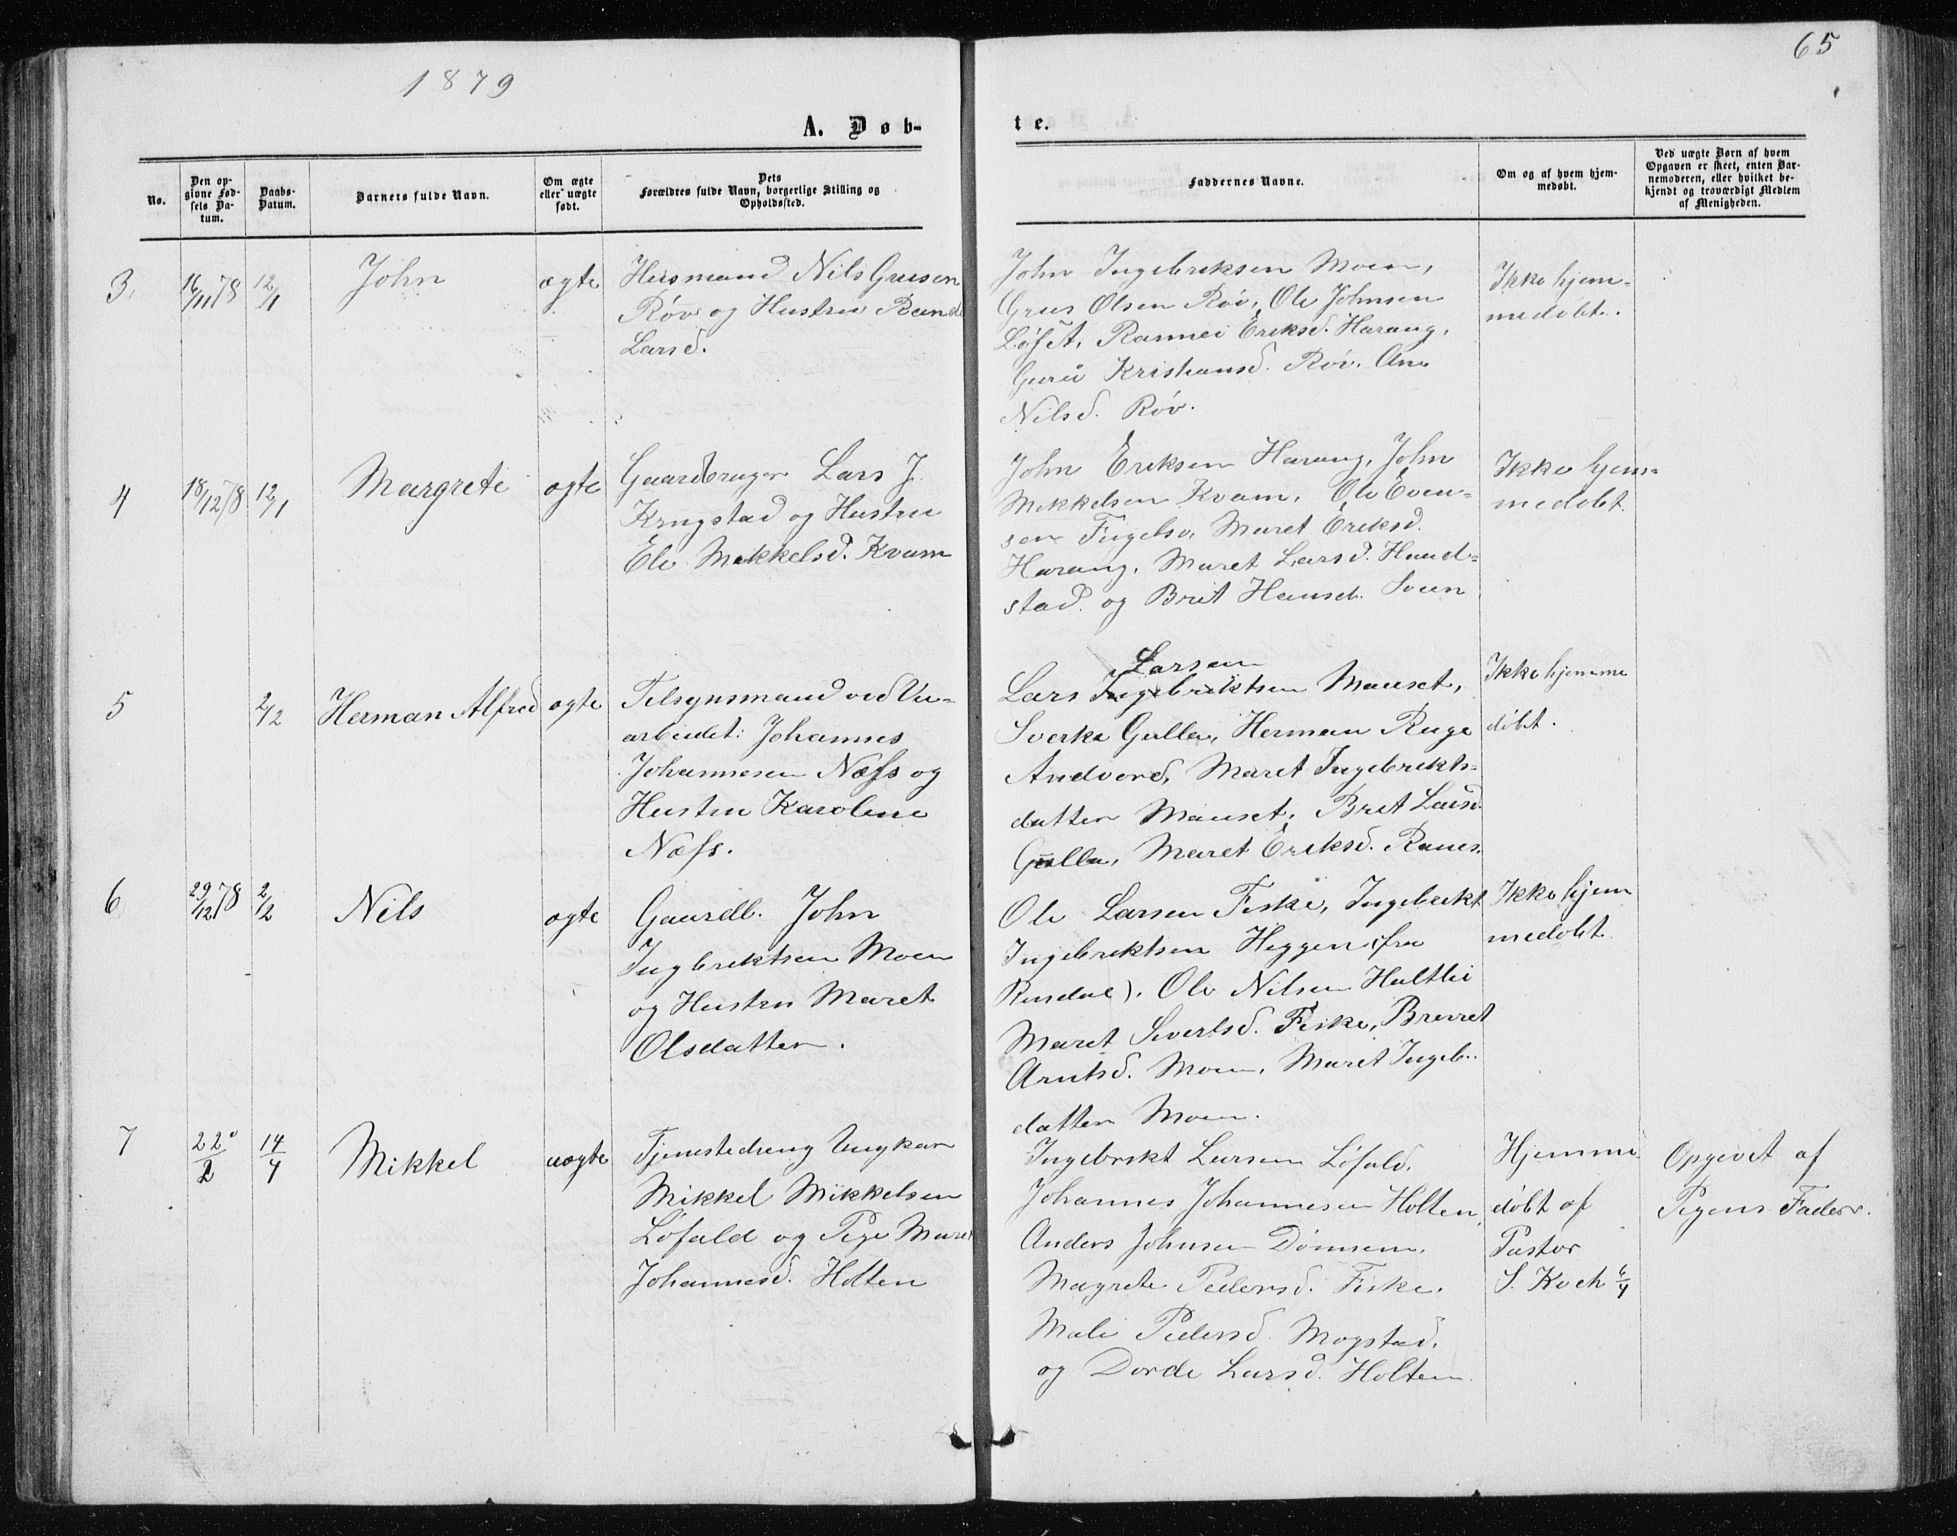 1879
65
A. Døb-
te.
No.
Den op-
givne Fød-
sels Da-
tum.
Daabs-
Datum.
Barnets fulde Navn.
Om ægte
eller uægte
født.
Dets
Forældres fulde Navn, borgerlige Stilling og
Opholdssted.
Faddernes Navne.
Om og af hvem hjem-
medøbt.
Ved uægte Børn af hvem
Opgaven er skeet, enten Bar-
nemoderen, eller hvilket be-
kjendt og troværdigt Medlem
af Menigheden.
3.
16/11 78
12/1
John
ægte
Husmand Nils Grusen
Røv og Hustru
Larsd.
John Ingebriksen Moen,
Grus Olsen Røv, Ole Johnsen
Løfst, Rannei Eriksd. Harang,
Guru Kristiansd. Røv. Ane
Nilsd. Røv.
Ikke hjem-
medøbt.
4
18/12 78
12/1
Margrete
ægte
Gaardbruger Lars J.
Krugstad og Hustru
Eli Mikkelsd. Kvam
John Eriksen Harang, John
Mikkelsen Kvam, Ole Even-
sen Fugelsø, Maret Eriksd.
Harang, Maret Larsd. Haud-
stad. og Brit Hansd. Sven
Ikke hjem-
medøbt.
5
2/2
Herman Alfred
ægte
Tilsynsmand ved Vei-
arbeidet: Johannes
Johannesen Næss og
Hustru Karoline
Næss.
Larsen
Lars Ingebriktsen Mauset,
Sverke Gulla, Herman Ruge
Andvord, Maret Ingebrikts-
datter Mauset, Brit Larsd.
Gulla, Maret Eriksd. Ranes.
Ikke hjemme
døbt.
6
29/12 78
2/2
Nils
ægte
Gaardb. John
Ingbriktsen Moen
og Hustru Maret
Olsdatter.
Ole Larsen Fiske, Ingebrikt
Ingebriktsen Heggem (fra
Rindal). Ole Nilsen Holtlii
Maret Sivertsd. Fiske,
Arntsd. Moen, Maret Ingeb.
datter Moen.
Ikke hjem
medøbt.
7
22/2
14/4
Mikkel
uægte
Tjenestedreng Ungkar
Mikkel Mikkelsen
Løfald og Pige Maret
Johannesd. Holten
Ingebrikt Larsen Løfald,
Johannes Johannesen Holten,
Anders Johnsen Dønnem,
Magrete Pedersd. Fiske,
Mali Pedersd. Mogstad,
og Dorde Larsd. Holten.
Hjemme
døbt af
Pastor
S. Koch 6/4
Opgivet af
Pigens Fader.